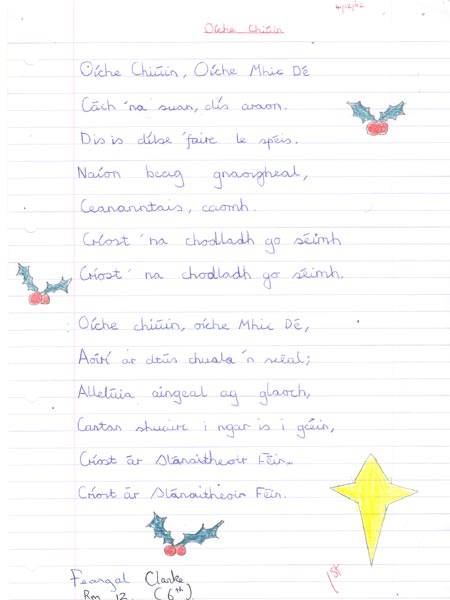 4/12/02
Oíche Chiúin
Oíche Chiúin, Oíche Mhic Dé
Cách 'na suan, dís araon.
Dis is dílse 'faire le spéis.
Naíon beag gnaoigheal,
Ceananntais, caomh.
Críost 'na chodladh go séimh
Críost 'na chodladh go séimh.
Oíche chiúin, oíche Mhic Dé,
Aoirí ar dtús chuala 'n scéal;
Allelúia aingeal ag glaoch,
Cantar shuairc i ngar is i gcéin,
Críost ár Slánaitheoir Féin..
Críost ár Slánaitheoir Féin.
1st
Feargal Clarke
Rm 12. (6th)